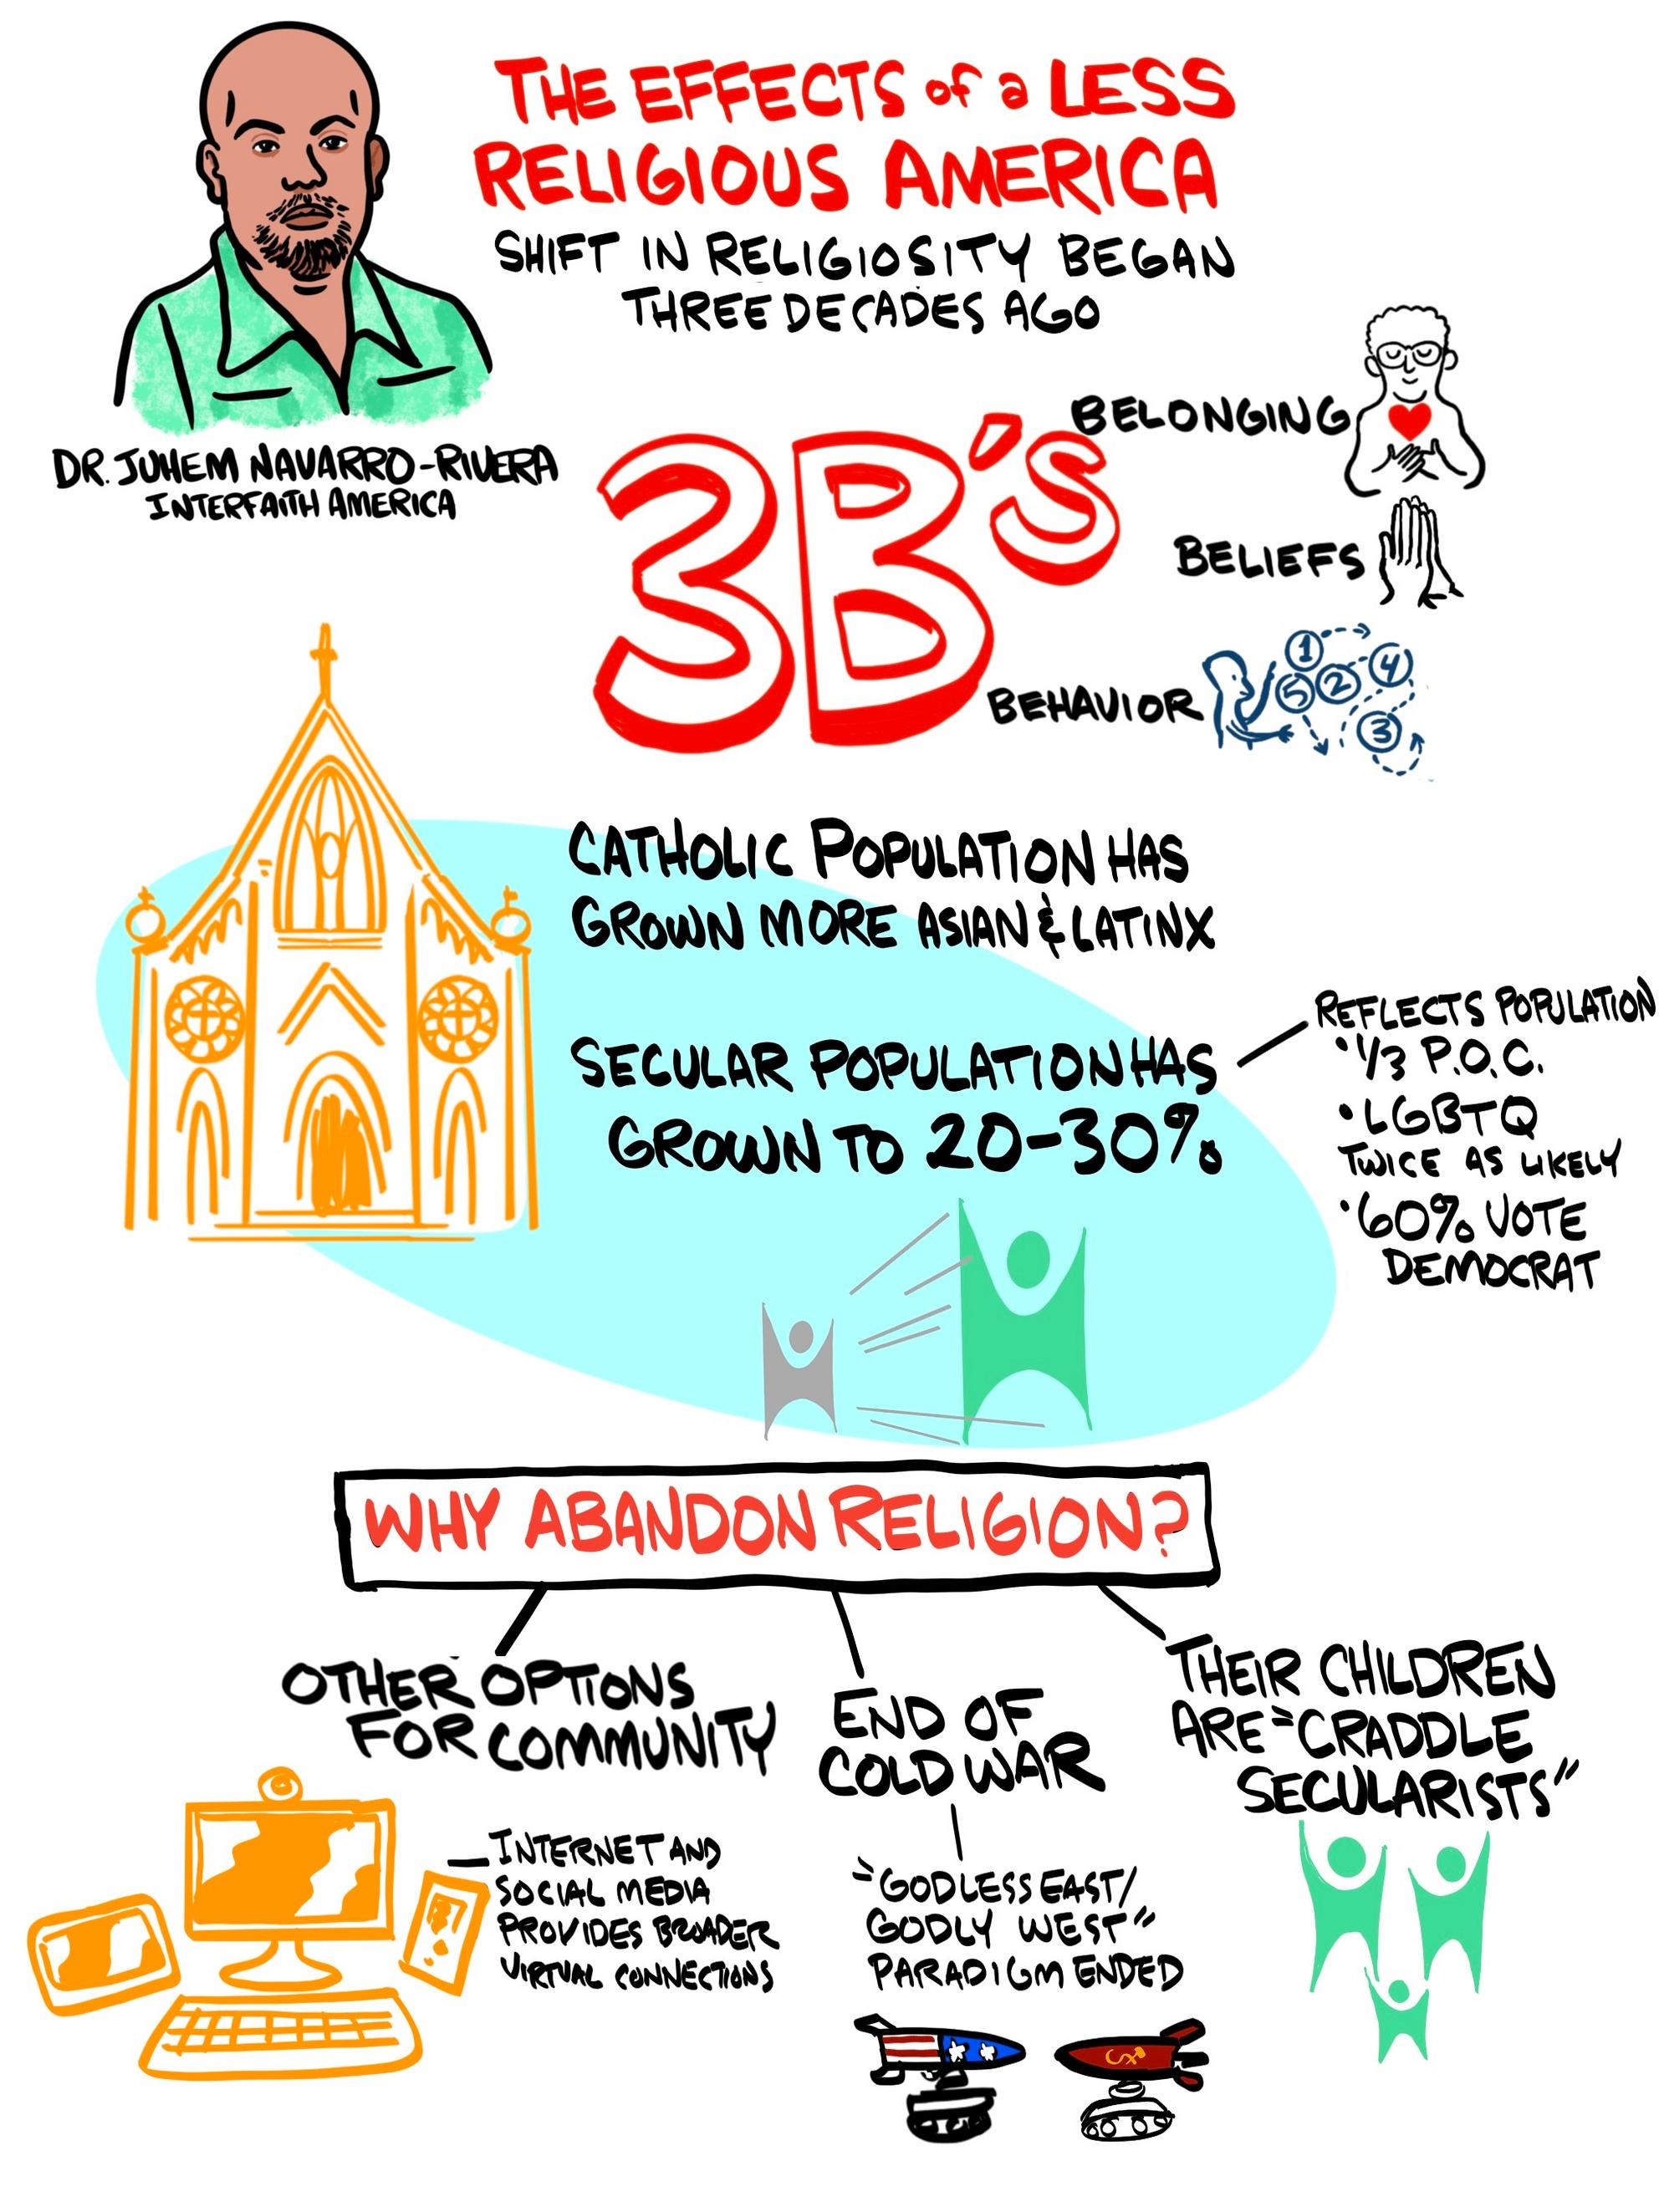 THE EFFECTS of a LESS
RELIGIOUS AMERICA
SHIFT IN RELIGIOSITY BEGAN
THREE DECADES AGO
DR. JUHEM NAVARRO-RIVERA
INTERFAITH AMERICA
3B's
BELONGING
BELIEFS
BEHAVIOR
1
4
5
2
3
CATHOLIC POPULATION HAS
GROWN MORE ASIAN & LATINX
SECULAR POPULATION HAS
GROWN TO 20-30%
REFLECTS POPULATION
• 1/3 P.O.C.
• LGBTQ
TWICE AS LIKELY
• 60% VOTE
DEMOCRAT
WHY ABANDON RELIGION?
OTHER OPTIONS
FOR COMMUNITY
INTERNET AND
SOCIAL MEDIA
PROVIDES BROADER
VIRTUAL CONNECTIONS
END OF
COLD WAR
"GODLESS EAST/
GODLY WEST"
PARADIGM ENDED
THEIR CHILDREN
ARE "CRADDLE
SECULARISTS"